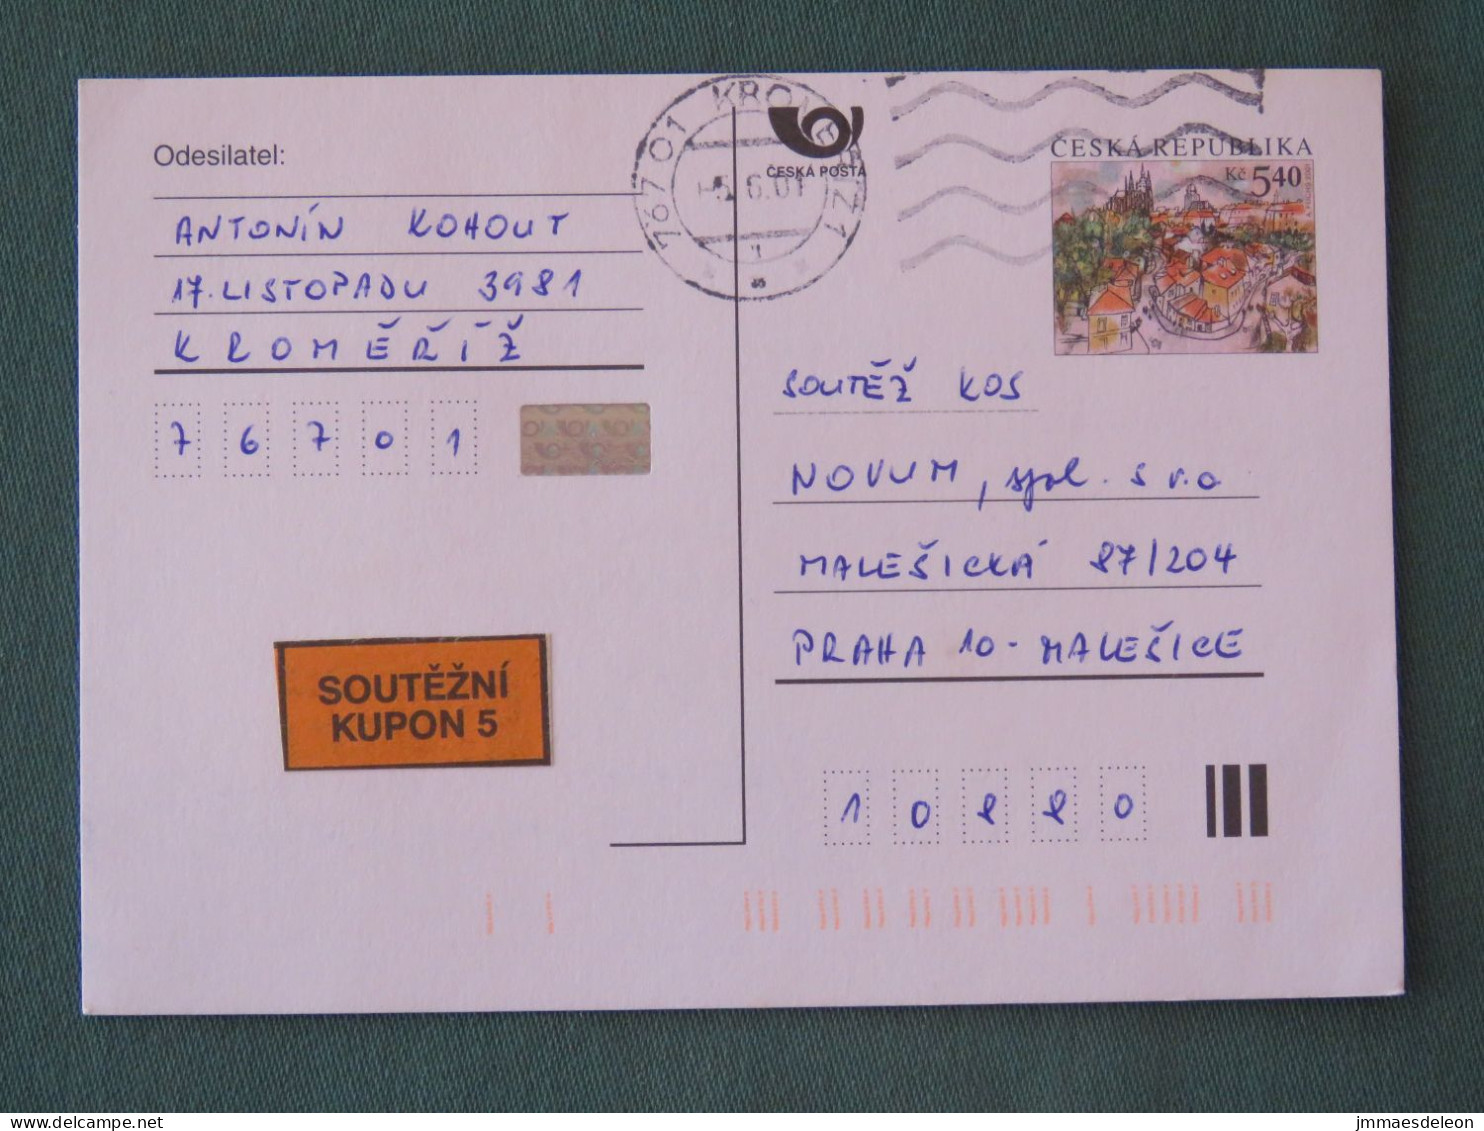 Odesilatel:
ANTONÍN KOHOUT
17. LISTOPADU 3981
KROMĚŘÍŽ
7 6 7 0 1
SOUTĚŽNÍ
KUPON 5
767 01 KROMĚŘÍŽ 1
-5.6.01
ČESKÁ POŠTA
ČESKÁ REPUBLIKA
Kč 5,40
SOUTĚŽ KOS
NOVUM, spol. s r.o
MALEŠICKÁ 87/204
PRAHA 10 - MALEŠICE
1 0 8 8 0
jmmaesdeleon